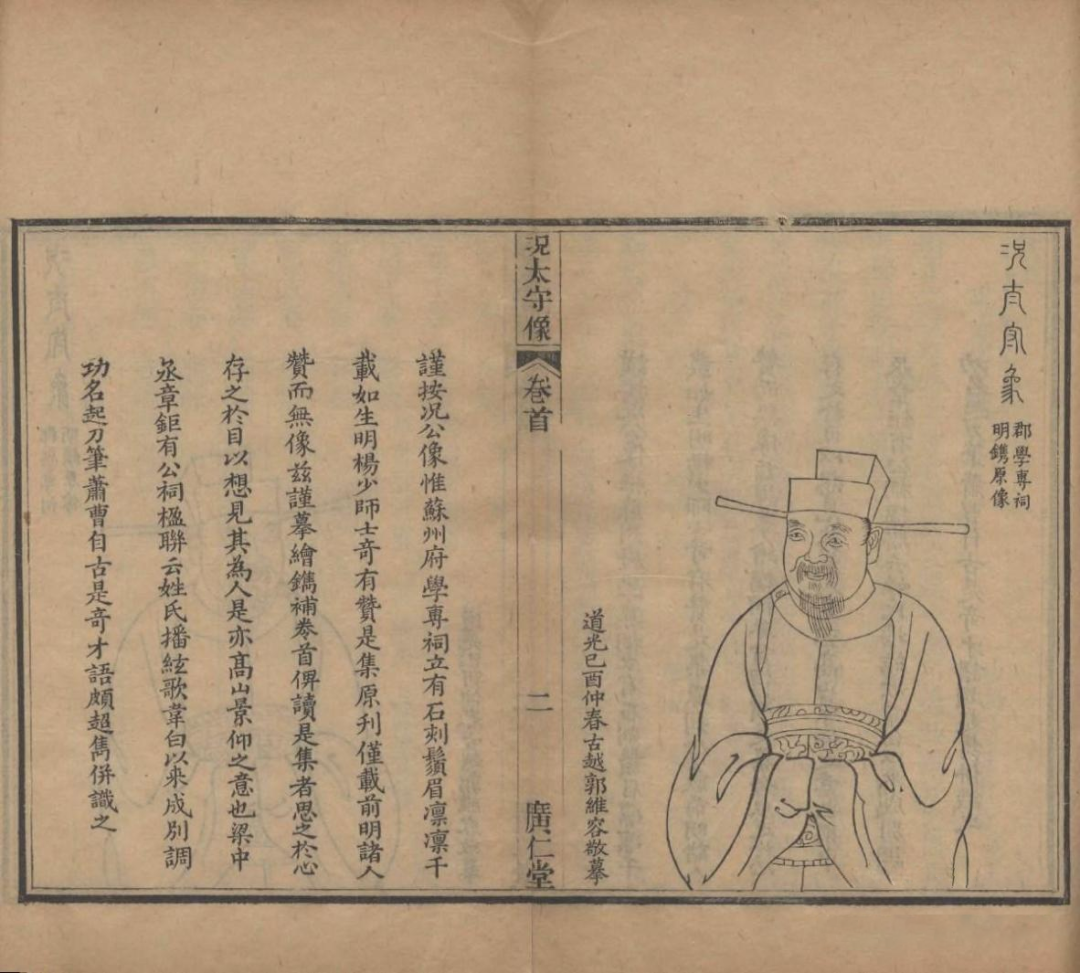 況太守象
郡學專祠
明鐫原像
道光己酉仲春古越郭維容敬摹
況太守像
卷首
二
廣仁堂
謹按况公像惟蘇州府學專祠立有石刺鬚眉凛凛千
載如生明楊少師士竒有贊是集原刋僅載前明諸人
贊而無像兹謹摹繪鐫補卷首俾讀是集者思之於心
存之於目以想見其為人是亦髙山景仰之意也梁中
丞章鉅有公祠楹聯云姓氏播絃歌韋白以来成別調
功名起刀筆蕭曹自古是竒才語頗超雋併識之